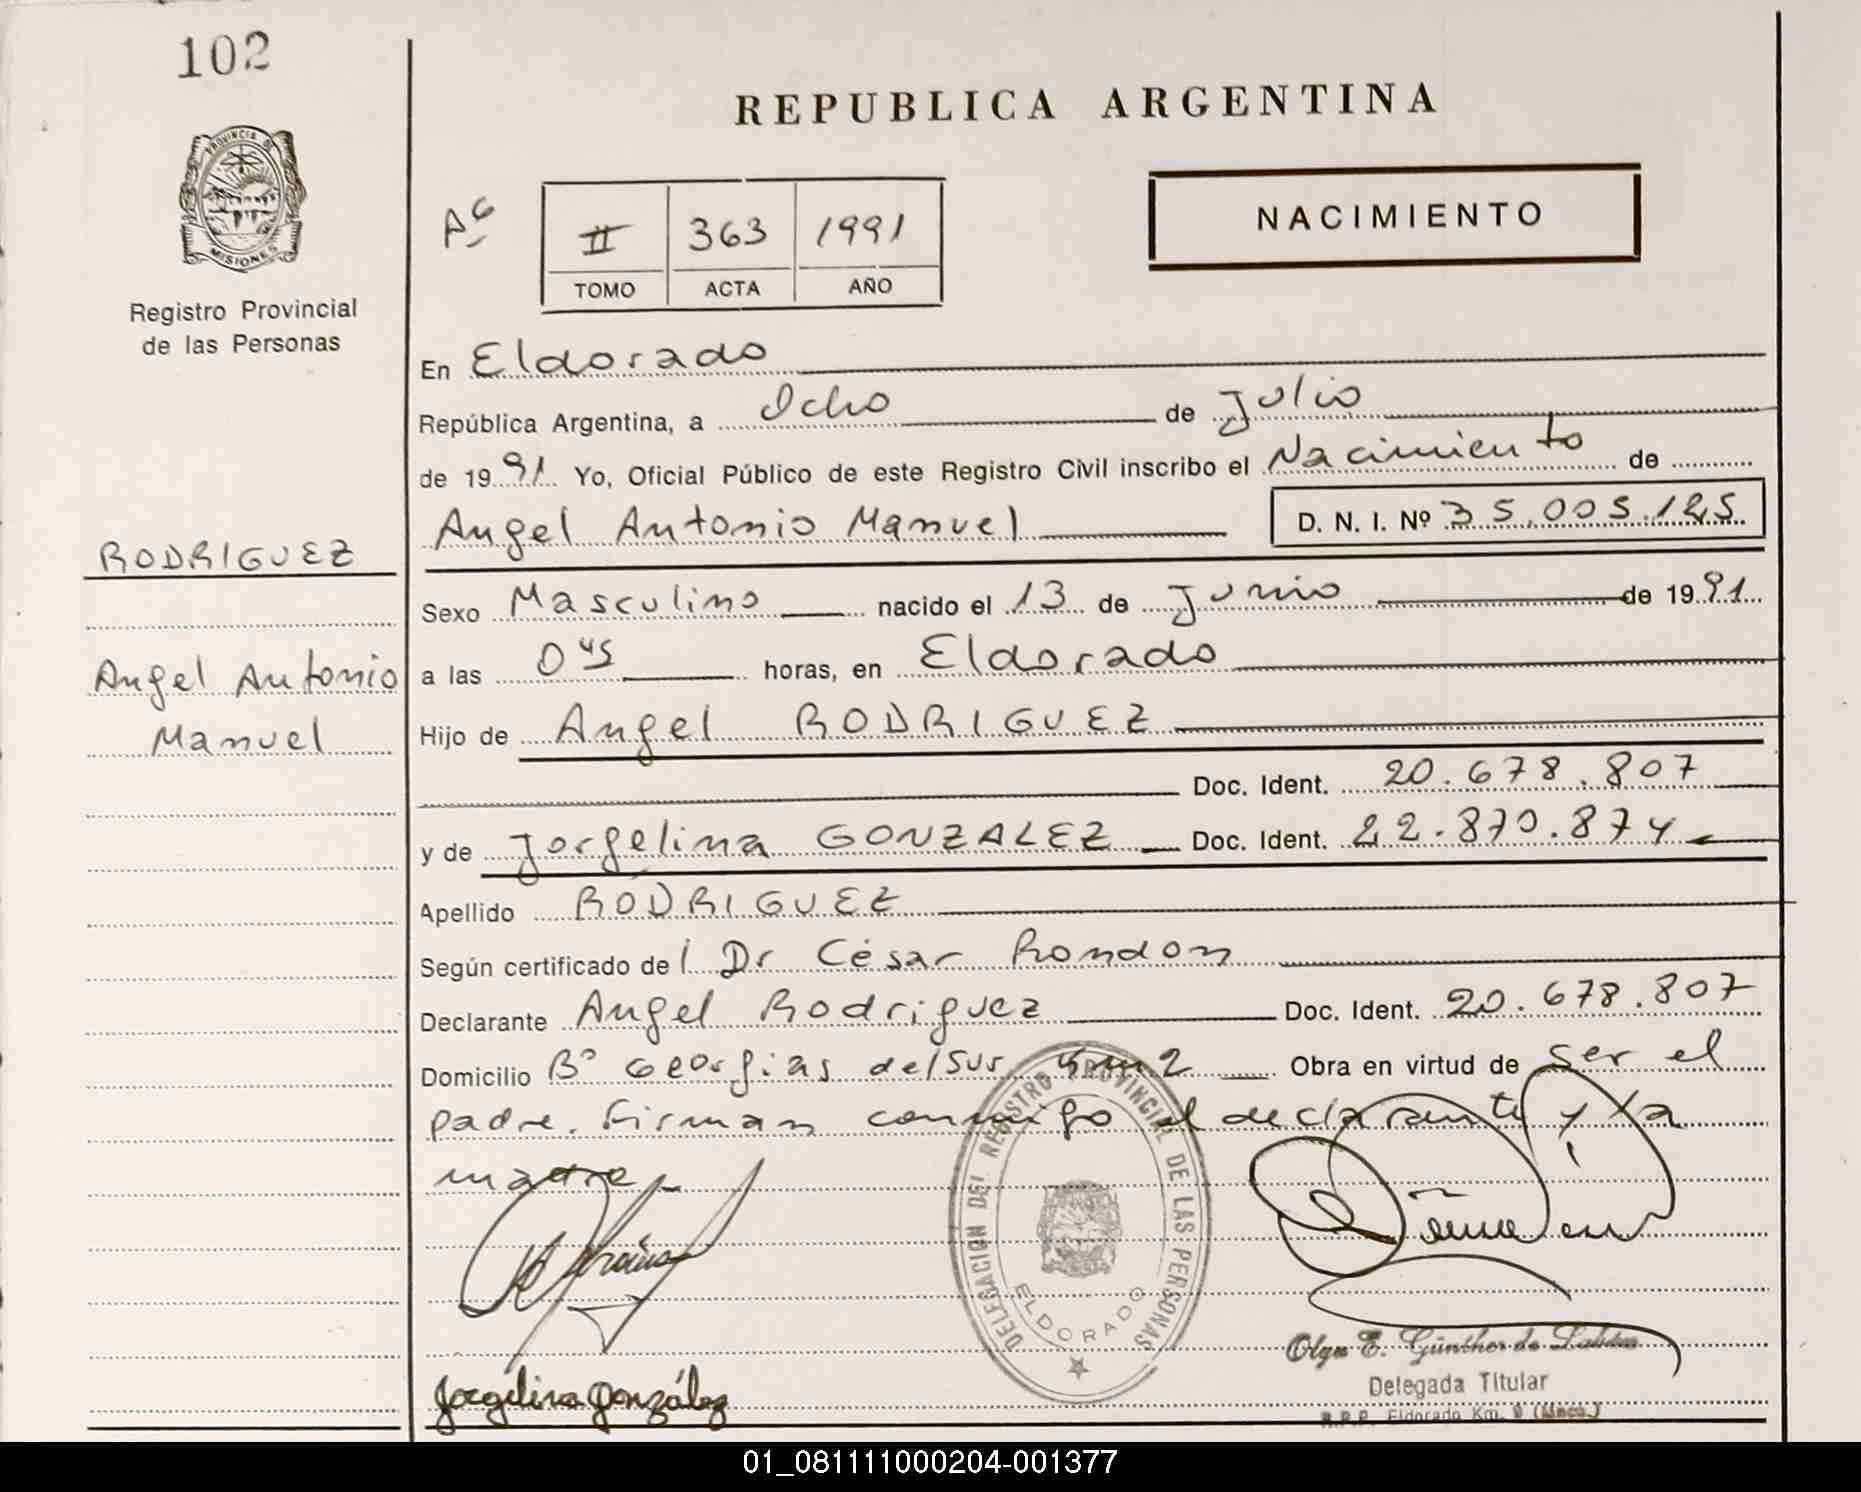 102
PROVINCIA DE
MISIONES
Registro Provincial
de las Personas
RODRIGUEZ
Angel Antonio
Manuel
REPUBLICA ARGENTINA
II 363 1991
TOMO ACTA AÑO
NACIMIENTO
En Eldorado
República Argentina, a Ocho de Julio
de 1991 Yo, Oficial Público de este Registro Civil inscribo el Nacimiento de
Angel Antonio Manuel D. N. I. Nº 35.005.125
Sexo Masculino nacido el 13 de Junio de 1991
a las 0 45 horas, en Eldorado
Hijo de Angel RODRIGUEZ
Doc. Ident. 20.678.807
y de Jorgelina GONZALEZ Doc. Ident. 22.870.874
Apellido RODRIGUEZ
Según certificado del Dr César Rondon
Declarante Angel Rodriguez Doc. Ident. 20.678.807
Domicilio Bº Georgias del Sur km 2 Obra en virtud de ser el
padre. Firman conmigo el declarante y la
madre
DELEGACION DEL REGISTRO PROVINCIAL DE LAS PERSONAS
ELDORADO
Jorgelina González
Olga E. Günther de
Delegada Titular
R.P.P. Eldorado Km. 9 (Mnes.)
01_081111000204-001377